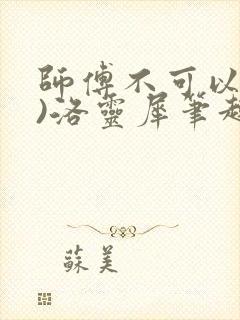 師傅不可以
)洛靈犀筆趣
蘇美